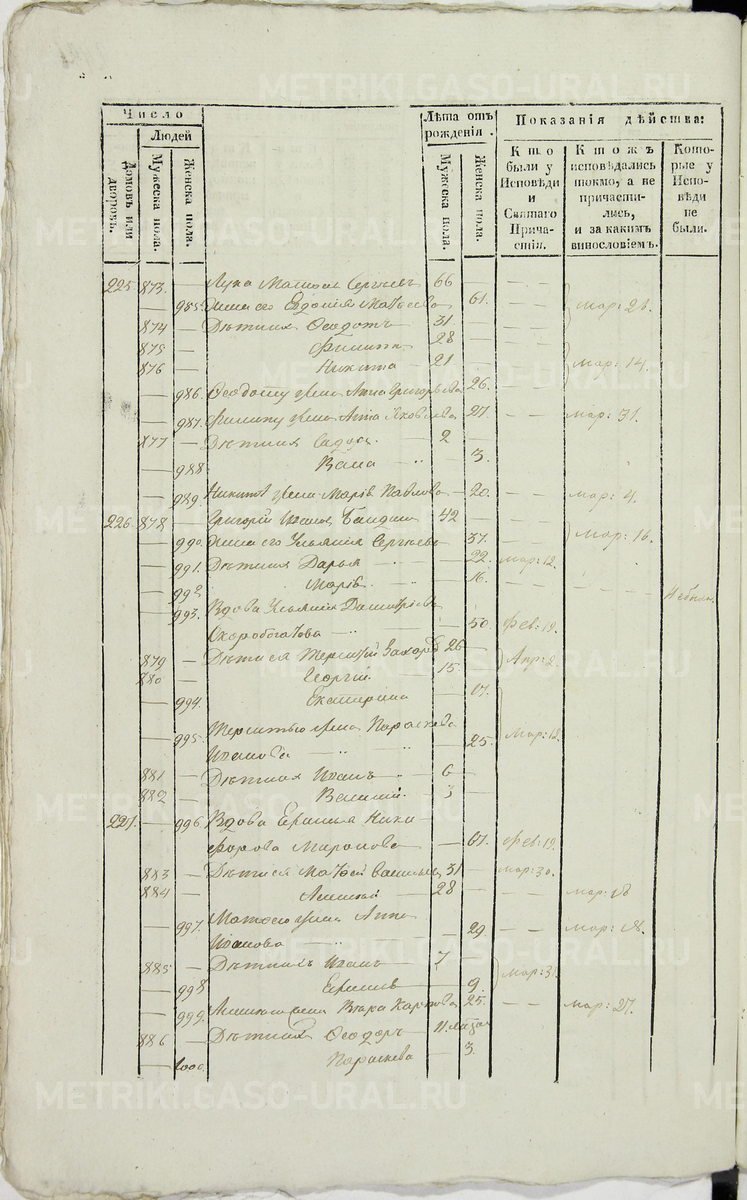 Число
Людей
Домовъ или дворовъ.
Мужеска пола.
Женска пола.
Лѣта отъ рожденія.
Мужеска пола.
Женска пола.
Показанія дѣйства:
Кто были у Исповѣди и Святаго Причастія.
Ктожъ исповѣдались токмо, а не причастились, и за какимъ винословіемъ.
Которые у Исповѣди не были.
225 873 — Лука Сергѣевъ 66 — — —
— 985 Жена его Евдокія Матвѣева 61 — — мар: 21.
874 — Дѣти ихъ Ѳеодотъ 31 —
875 — Филиппъ 28 —
876 — Никита 21 — — мар: 14.
— 986 Ѳеодоту жена Анна Григорьева 26.
— 987 Филиппу жена Анна Яковлева 27. — — мар: 31.
877 — Дѣти ихъ 2 —
— 988 3.
— 989. Никитѣ жена Марія Павлова — 20. — — мар: 4.
226 878 — Григорій 42 — — —
— 990. Жена его Ульянія Сергѣева 37. — — мар: 16.
— 991. Дѣти ихъ Дарья — 22. мар: 12.
— 992 Марія — 16. — — Не были.
— 993. Вдова Ульянія Дмитріева
Скоробогатова — 50. фев: 19.
879 — Дѣти ея Терентій 26 — Апр: 2.
880 — Георгій 15. —
— 994. Екатерина — 17.
— 995 Терентью жена Параскева
Иванова — 25. мар: 12.
881 — Дѣти ихъ Иванъ — 6 —
882 — Василій — 3 —
227. — 996 Вдова Ники
форова Миронова — 67. фев: 19.
883 — Дѣти ея Матвѣй 31 — мар: 30.
884 — Алексѣй — 28 — — мар: 18
— 997. Матвѣю жена Анна
Иванова — 29. — мар: 18.
885 — Дѣти ихъ Иванъ — 7 — мар: 31
— 998 — 9.
— 999. жена Вѣра Карпова 25. — — мар: 27.
886 — Дѣти ихъ Ѳеодоръ — 11
— 1000. Параскева — 3.
METRIKI.GASO-URAL.RU